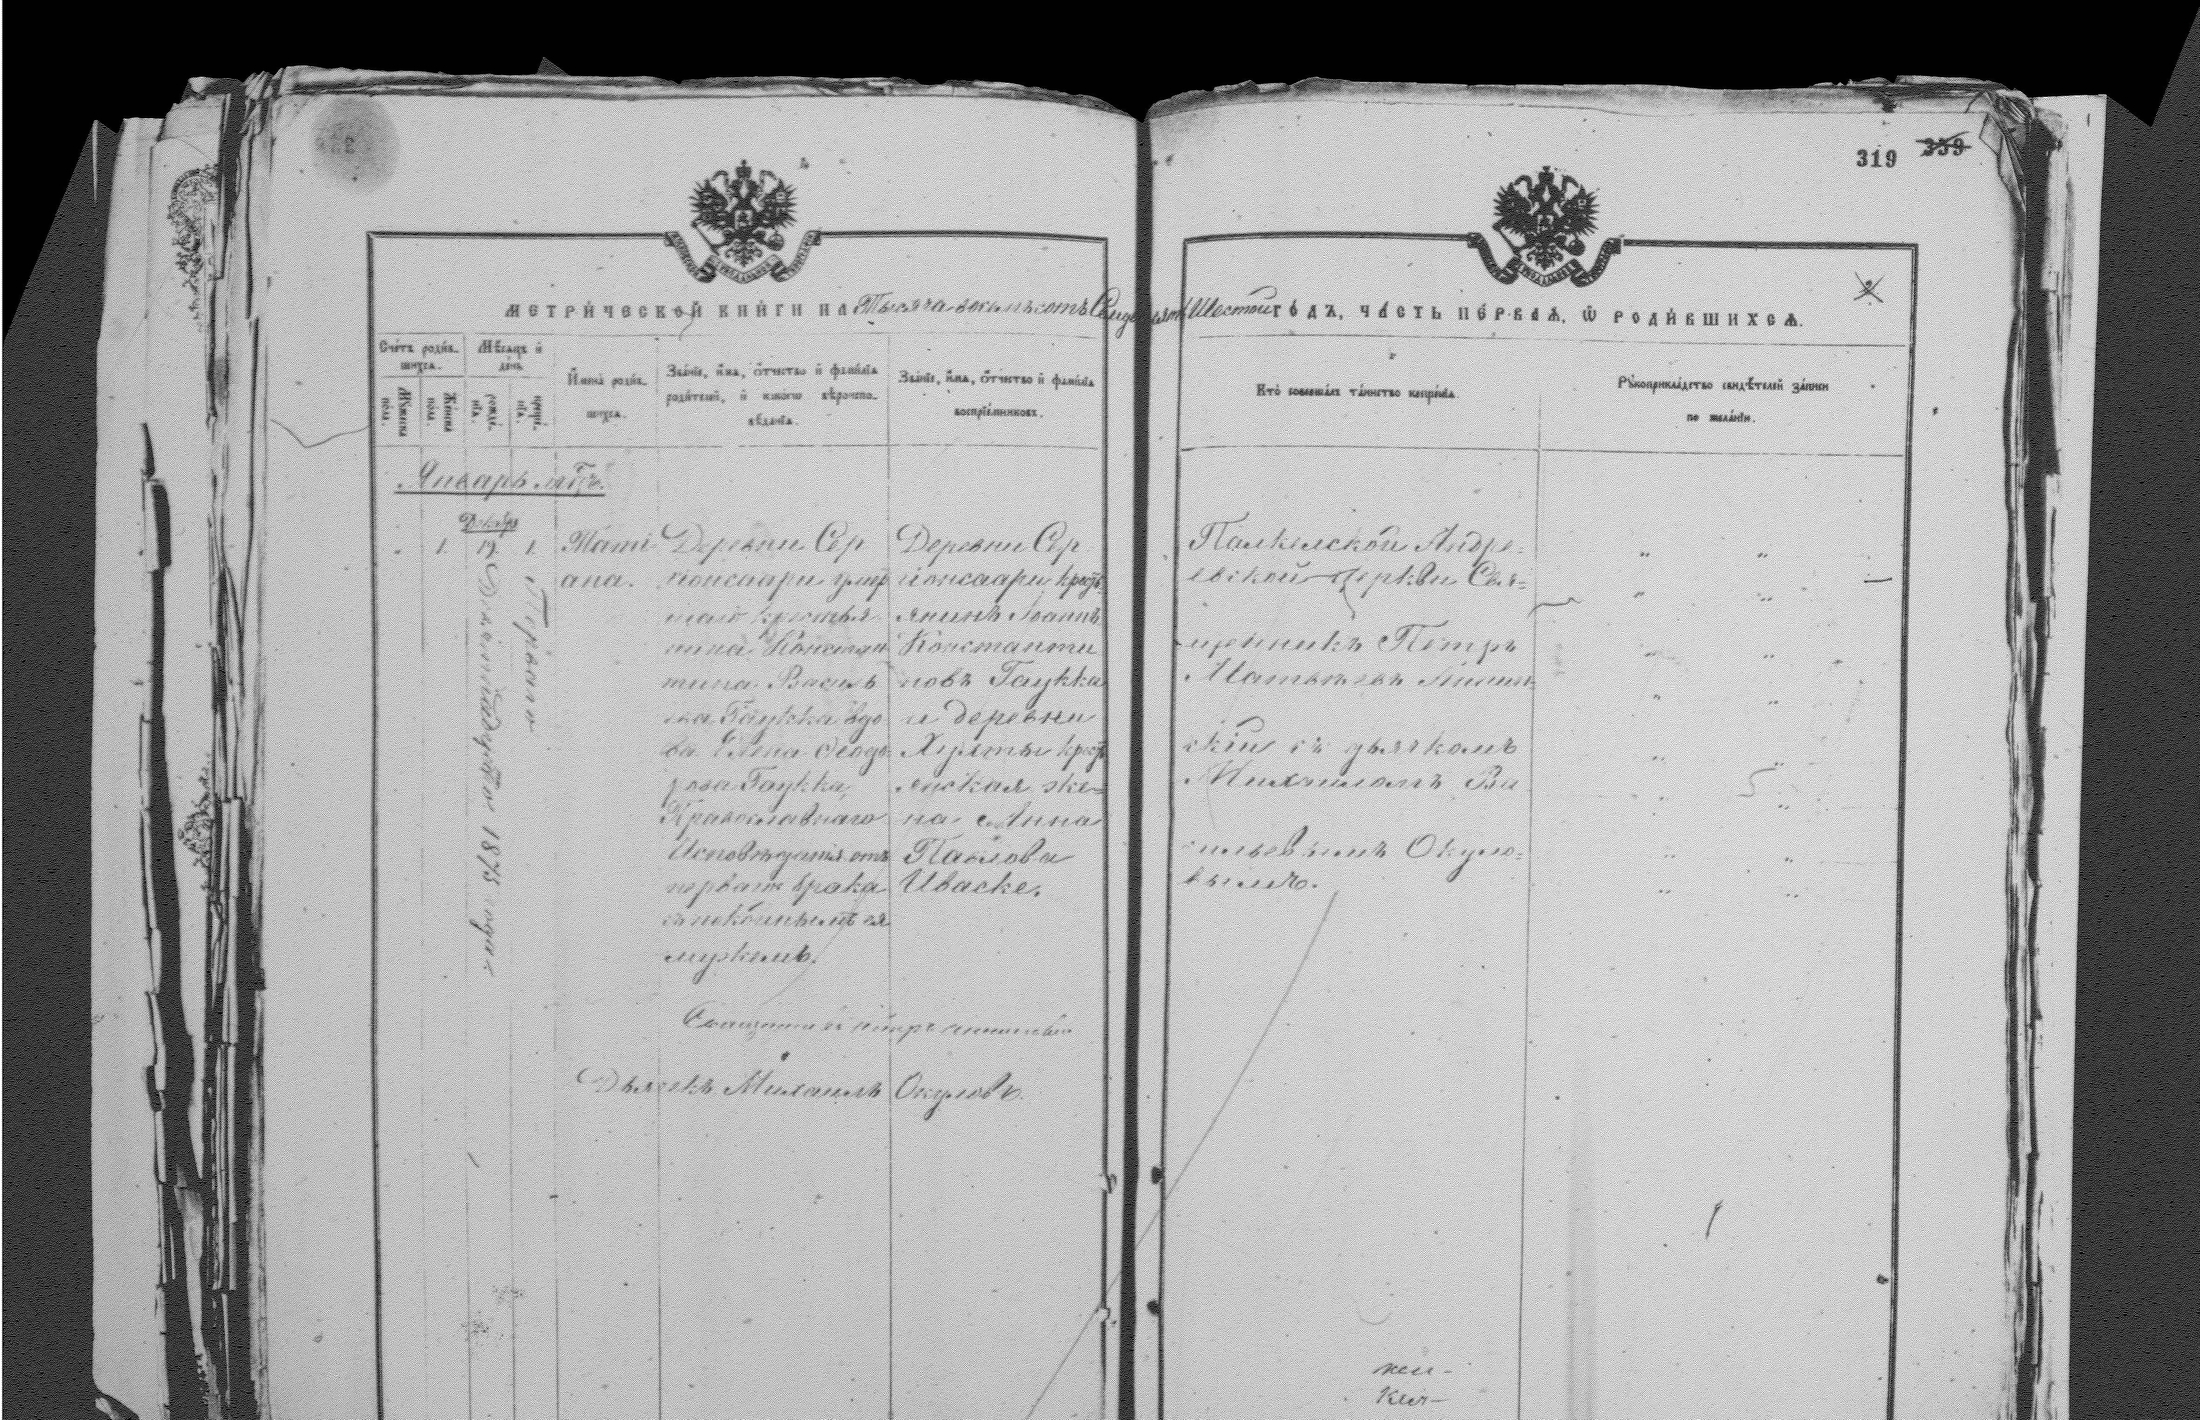 319 339
МЕТРИЧЕСКОЙ КНИГИ НА Тысяча восемьсотъ Семьдесятъ Шестой ГОДЪ, ЧАСТЬ ПЕРВАЯ, Ѡ РОДИВШИХСЯ.
Счетъ родив-
шихся.
Мужеска
пола.
Женска
пола.
Мѣсяцъ и
день
рожде-
нія.
креще-
нія.
Имена родив-
шихся.
Званіе, имя, отчество и фамилія
родителей, и какого вѣроиспо-
вѣданія.
Званіе, имя, отчество и фамилія
воспріемниковъ.
Кто совершалъ таинство крещенія.
Рукоприкладство свидѣтелей записи
по желанію.
Январь мсцъ.
Декабр
1. 19. 1.
1875 года
Перваго
Таті
ана.
Деревни Сер
гіонсаари умер
шаго крестья
нина Констан
тина Василь
ева Гаукка вдо
ва Елена Ѳеодо
рова Гаукка,
Православнаго
Исповѣданія отъ
перваго брака
съ покойнымъ ея
мужемъ.
Деревни Сер
гіонсаари крест
янинъ Іоаннъ
Константи
новъ Гаукка
и деревни
крест
янская же-
на Анна
Павлова
Иваске.
Палкелской Андре-
евской церкви Свя-
щенникъ Петръ
скій съ дьячкомъ
Михаиломъ Ва
сильевымъ Окуло-
вымъ.
Дьячекъ Михаилъ Окуловъ.